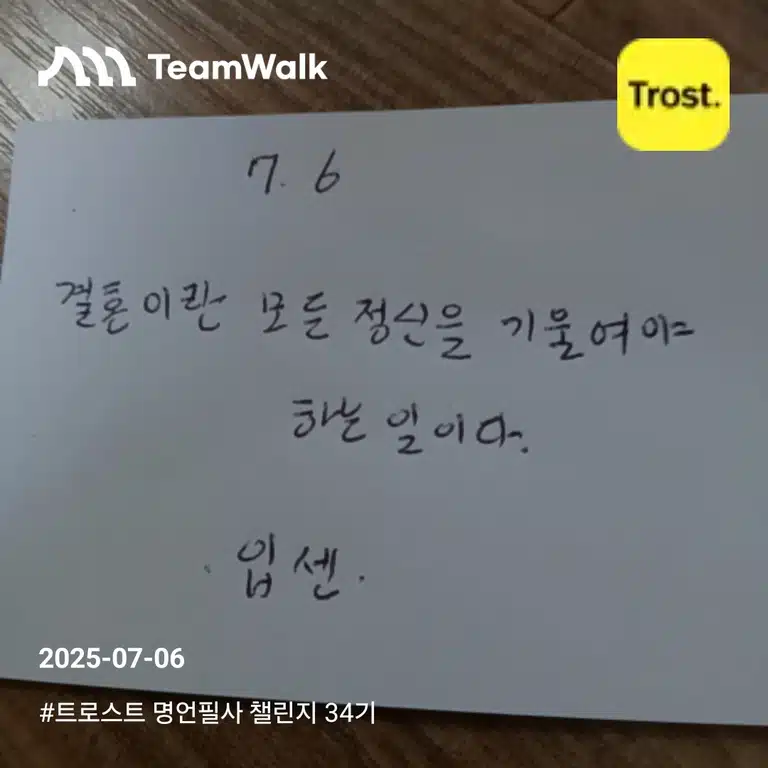 TeamWalk
Trost.
7. 6
결혼이란 모든 정신을 기울여야
하는 일이다.
입센.
2025-07-06
#트로스트 명언필사 챌린지 34기